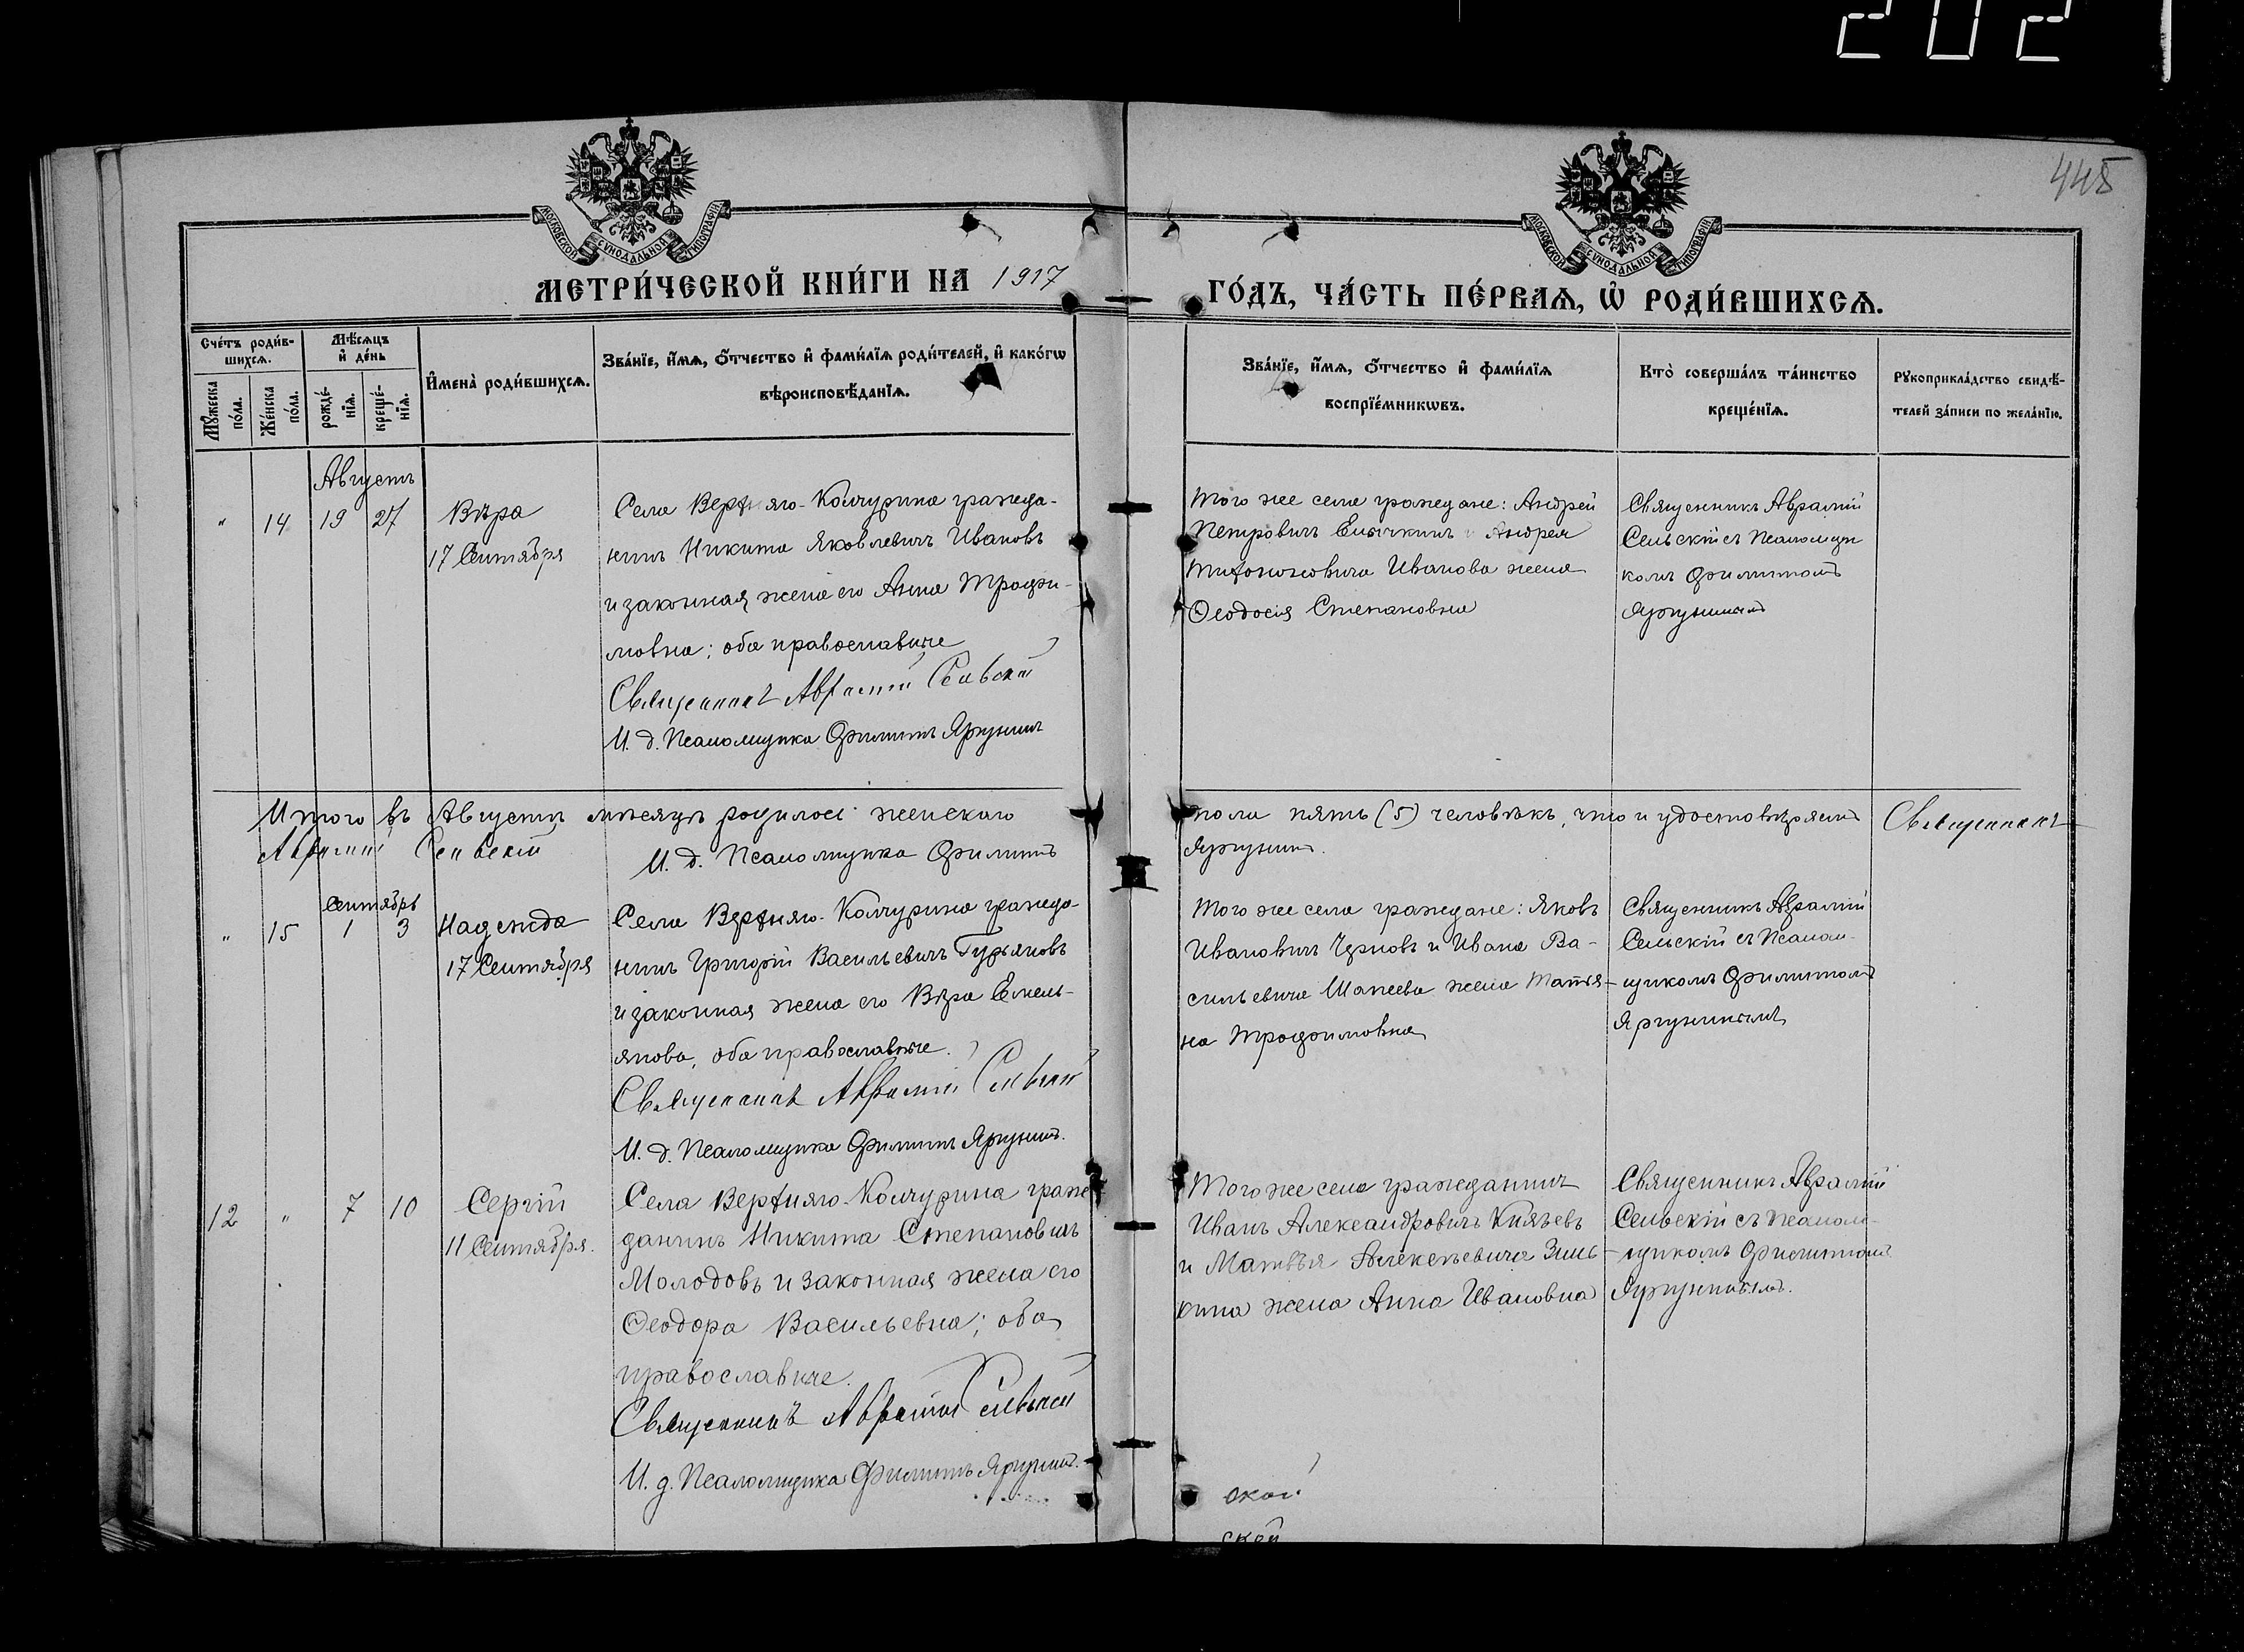 202
445
МОСКОВСКОЙ СѴНОДАЛЬНОЙ ТИПОГРАФІИ
МОСКОВСКОЙ СѴНОДАЛЬНОЙ ТИПОГРАФІИ
МЕТРИ́ЧЕСКОЙ КНИ́ГИ НА 1917
ГО́ДЪ, ЧА́СТЬ ПЕ́РВАѦ, Ѽ РОДИ́ВШИХСѦ.
Сче́тъ роди́в-
шихсѧ.
Мꙋ́жеска
по́ла.
Же́нска
по́ла.
Мѣ́сѧцъ
и҆ де́нь
рожде́-
нїѧ.
креще́-
нїѧ.
И҆мена̀ роди́вшихсѧ.
Зва́нїе, и҆́мѧ, ѻ҆́тчество и҆ фами́лїѧ роди́телей, и҆ како́гѡ
вѣроисповѣ́данїѧ.
Зва́нїе, и҆́мѧ, ѻ҆́тчество и҆ фами́лїѧ
воспрїе́мникѡвъ.
Кто̀ соверша́лъ та́инство
креще́нїѧ.
Рꙋкоприкла́дство свидѣ́-
телей за́писи по жела́нїю.
Августъ
" 14 19 27
Вѣра
17 Сентября
Села Верхняго-Колчурина гражда-
нинъ Никита Яковлевичъ Ивановъ
и законная жена его Анна Трофи-
мовна; оба православные
Священникъ Аврамій Сельскій
И. д. Псаломщика Филиппъ Яргунинъ
Того же села граждане: Андрей
Петровичъ и Андрея
Тихоновича Иванова жена
Ѳеодосія Степановна
Священникъ Аврамій
Сельскій съ Псаломщи
комъ Филиппомъ
Яргунинымъ
Итого въ Августѣ мѣсяцѣ родилось женскаго
пола пять (5) человѣкъ, что и удостовѣряемъ Священникъ
Аврамій Сельскій И. д. Псаломщика Филиппъ
Яргунинъ.
Сентябрь
" 15 1 3
Надежда
17 Сентября
Села Верхняго-Колчурина гражда-
нинъ Григорій Васильевичъ Гурьяновъ
и законная жена его Вѣра Емель-
янова, оба православные.
Священникъ Аврамій Сельскій
И. д. Псаломщика Филиппъ Яргунинъ.
Того же села граждане: Яковъ
Ивановичъ Чрновъ и Ивана Ва-
сильевича Шапеева жена Татья-
на Трофимовна
Священникъ Аврамій
Сельскій съ Псалом-
щикомъ Филиппомъ
Яргунинымъ
12 " 7 10
Сергій
11 Сентября.
Села Верхняго-Колчурина граж
данинъ Никита Степановичъ
Молодовъ и законная жена его
Ѳеодора Васильевна; оба
православные.
Священникъ Аврамій Сельскій
И. д. Псаломщика Филиппъ Яргунинъ.
Того же села гражданинъ
Иванъ Александровичъ Князевъ
и Матвѣя Алексѣевича Зинь-
кина жена Анна Ивановна
Священникъ Аврамій
Сельскій съ Псалом-
щикомъ Филиппомъ
Яргунинымъ.
ской
ской